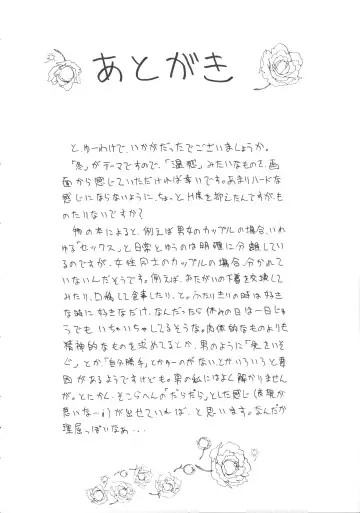 あとがき
と、ゆーわけで、いかがだったでございましょうか。
「冬」がテーマですので、「温感」みたいなものを、画
面から感じていただければ幸いです。あまりハードな
感じにならないように、ちょっとH度を抑えたんですが、も
のたりないですか？
物の本によると、例えば男女のカップルの場合、いわ
ゆる「セックス」と日常とゆうのは明確に分離してい
るのですが、女性分士のカップルの場合、分かれてい
ないんだそうです。例えば、おたがいの下着を交換して
みたり、口移しで食事したり、と。ふたりきりの時は好き
な時に好きなだけ、なんだったら休みの日は一日じゅ
うでもいちゃいちゃしてるそうな。肉体的なものよりも
精神的なものを求めてるとか、男のように「先をいそ
ぐ」とか、「自分勝手」とかゆーのがない、とかいろいろと要
因があるようですけども。男の私にはよく解かりません
が。とにかく、そこらへんの「だらだら」とした感じ（表現が
悪いなー）が出せていれば、と思います。なんだか
理屈っぽいなぁ・・・